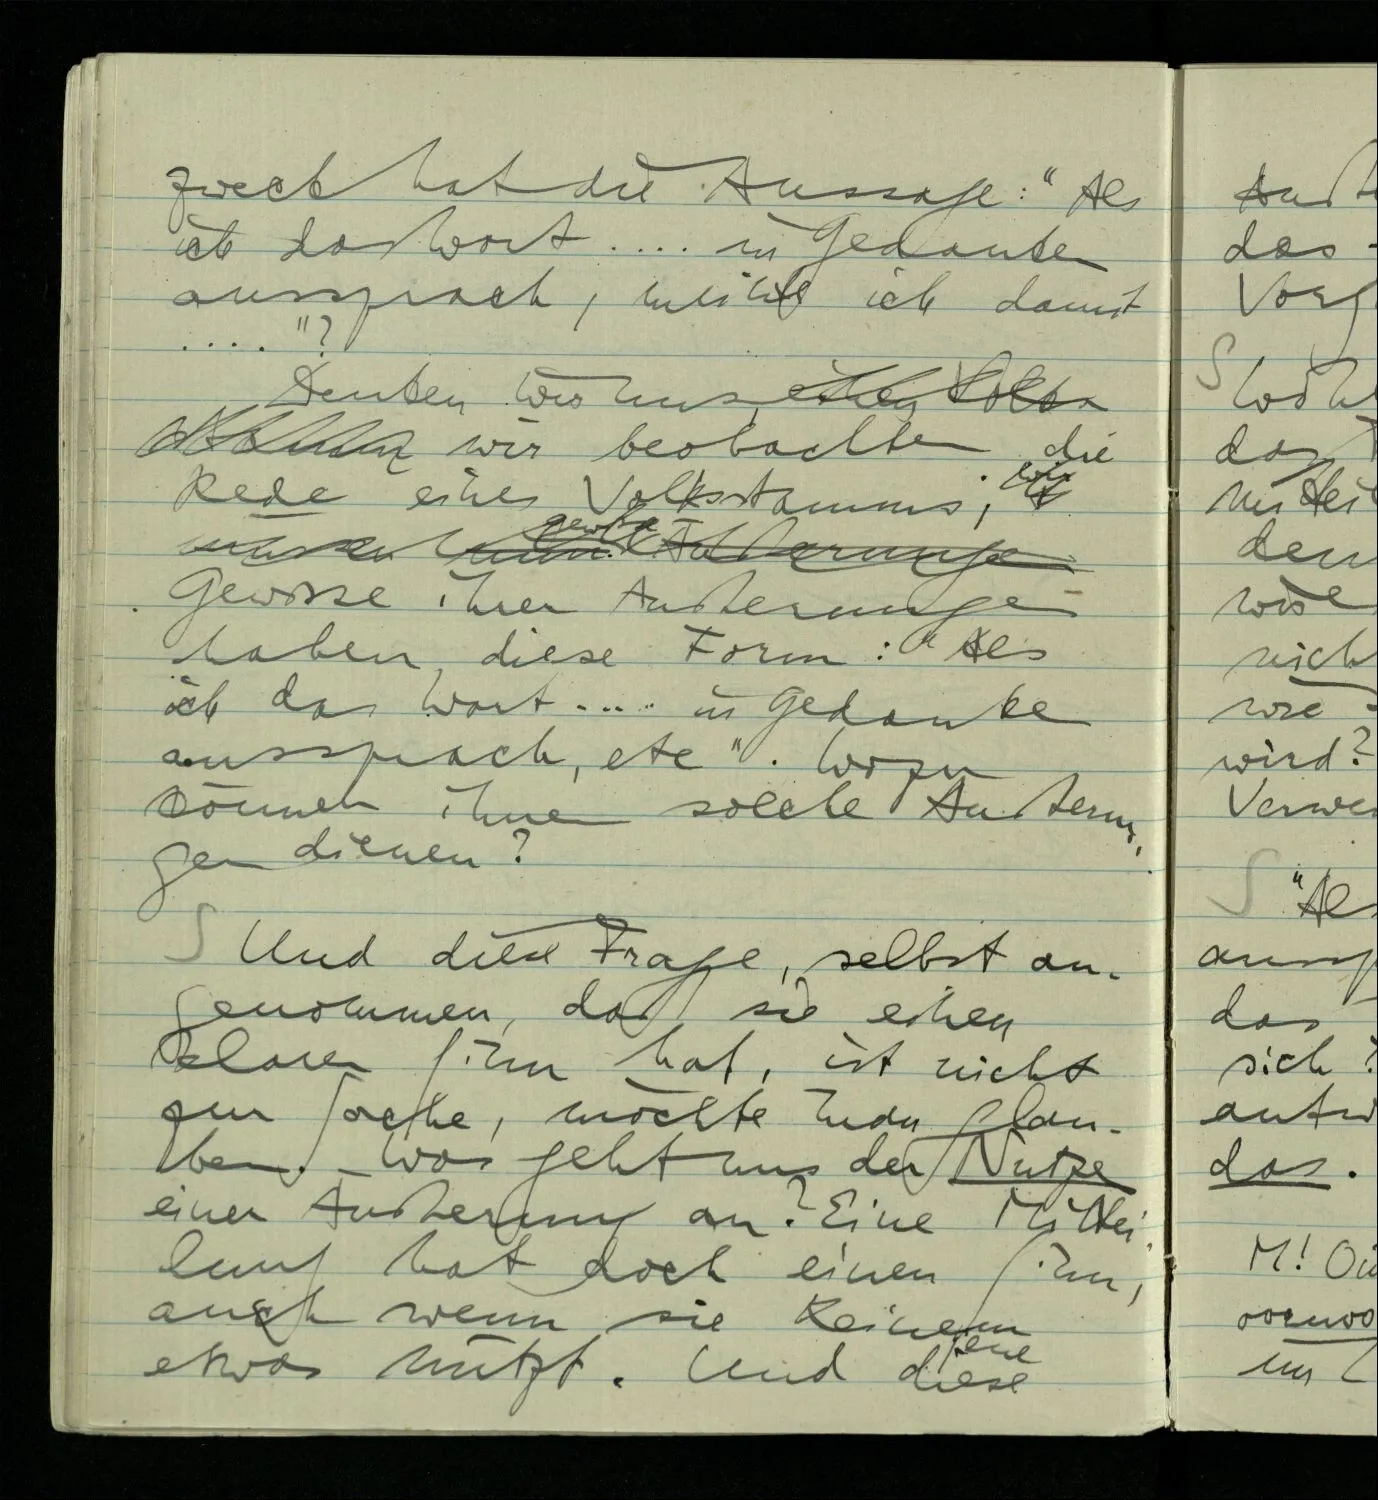 zweck hat die Aussage: "Als
ich das Wort .... in Gedanken
aussprach, meinte ich damit
...."?
Denken wir uns, einen Volks
wir beobachten die
Rede eines Volksstamms; wir
gewisse Äußerungen
Gewisse ihrer Äußerungen
haben diese Form: "Als
ich das Wort .... in Gedanken
aussprach, etc". Wozu
können ihnen solche Äußerun-
gen dienen?
S Und diese Frage, selbst an-
genommen, daß sie einen
klaren Sinn hat, ist nicht
zur Sache, möchte man glau-
ben. Was geht uns der Nutzen
einer Äußerung an? Eine Mittei-
lung hat doch einen Sinn,
auch wenn sie keinem
jene
etwas nützt. Und diese
das
Vorg
S Wohl
den
nich
wird?
Verwe
S "Als
aussp
das
sich?
antw
das.
M!